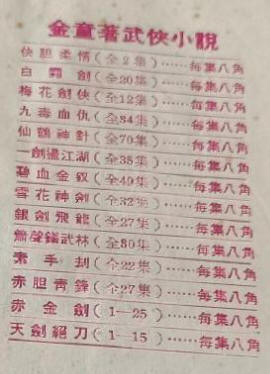 金童著武俠小說
俠胆柔情(全2集)……每集八角
白霜劍(全20集)……每集八角
梅花劍俠(全12集)……每集八角
九毒血仇(全84集)……每集八角
仙鶴神針(全70集)……每集八角
一劍盪江湖(全38集)……每集八角
碧血金釵(全49集)……每集八角
雪花神劍(全32集)……每集八角
銀劍飛龍(全27集)……每集八角
簫聲鐲武林(全80集)……每集八角
素手刦(全22集)……每集八角
赤胆青鋒(全27集)……每集八角
赤金劍(1—25)……每集八角
天劍絕刀(1—15)……每集八角